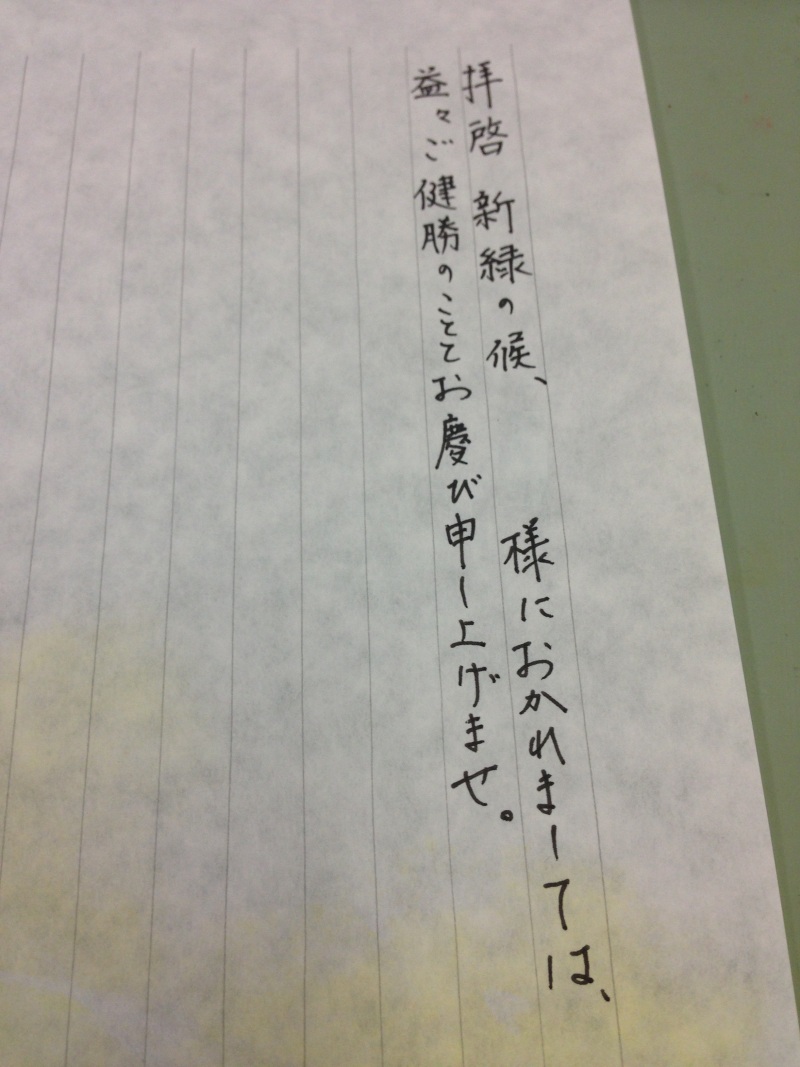 拝啓 新緑の候、 様におかれましては、
益々ご健勝のこととお慶び申し上げます。